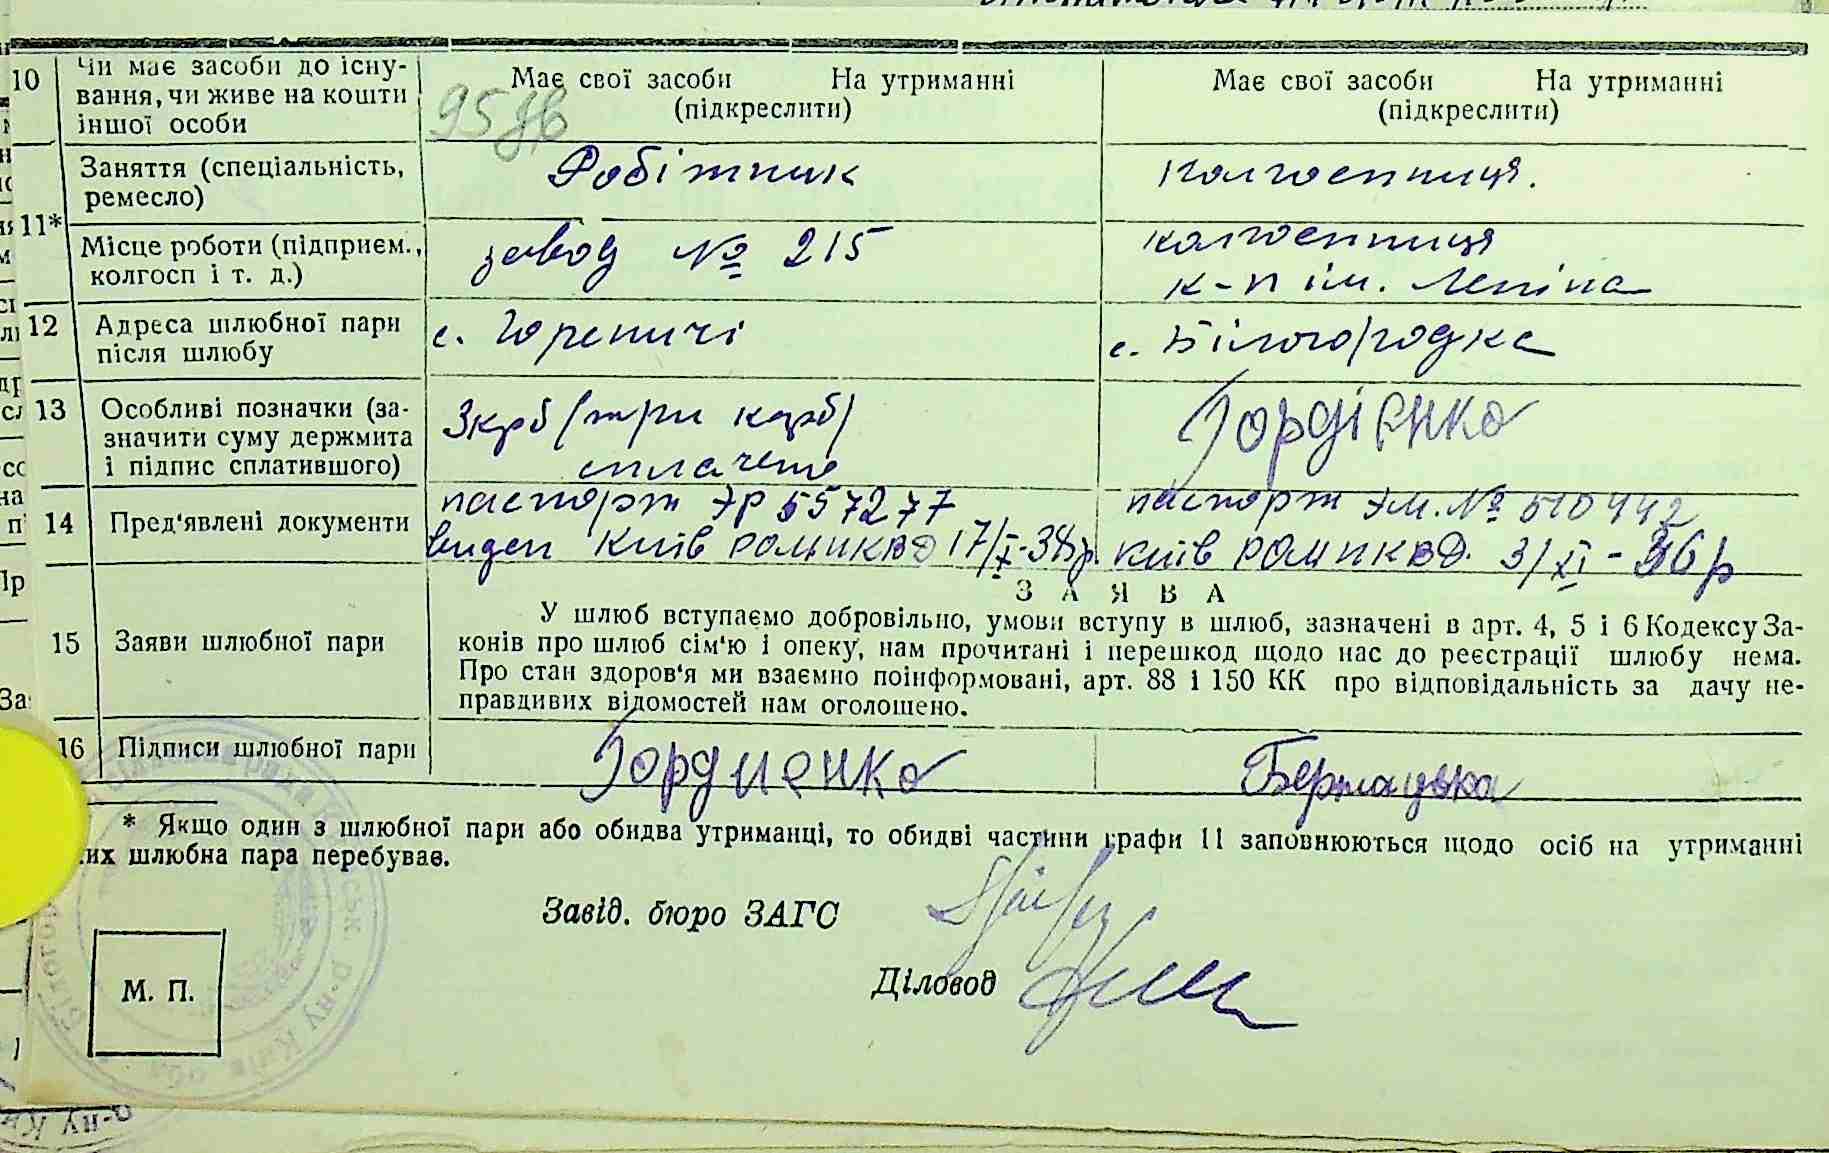 10 Чи має засоби до існу-
вання, чи живе на кошти
іншої особи
Має свої засоби На утриманні
(підкреслити)
Має свої засоби На утриманні
(підкреслити)
95
11* Заняття (спеціальність,
ремесло)
Робітник
колгоспниця.
Місце роботи (підприєм.,
колгосп і т. д.)
завод № 215
колгоспниця
к-п ім. Леніна
12 Адреса шлюбної пари
після шлюбу
с. Гореничі
с. Білогородка
13 Особливі позначки (за-
значити суму держмита
і підпис сплатившого)
3 крб /три карб/
сплачено
Гордієнко
14 Пред'явлені документи
паспорт ЭР 557277
видан Київ РОМ НКВД 17/X-38р.
паспорт ЭМ. № 510442
Київ РОМ НКВД. 3/XI-36р
15 Заяви шлюбної пари
ЗАЯВА
У шлюб вступаємо добровільно, умови вступу в шлюб, зазначені в арт. 4, 5 і 6 Кодексу За-
конів про шлюб сім'ю і опеку, нам прочитані і перешкод щодо нас до реєстрації шлюбу нема.
Про стан здоров'я ми взаємно поінформовані, арт. 88 і 150 КК про відповідальність за дачу не-
правдивих відомостей нам оголошено.
16 Підписи шлюбної пари
Гордиенко
* Якщо один з шлюбної пари або обидва утриманці, то обидві частини графи 11 заповнюються щодо осіб на утриманні
их шлюбна пара перебуває.
Завід. бюро ЗАГС
Діловод
М. П.